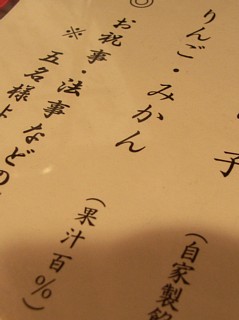 の子
（自家製
りんご・みかん
（果汁百％）
◎
お祝事・法事などの
※五名様よ